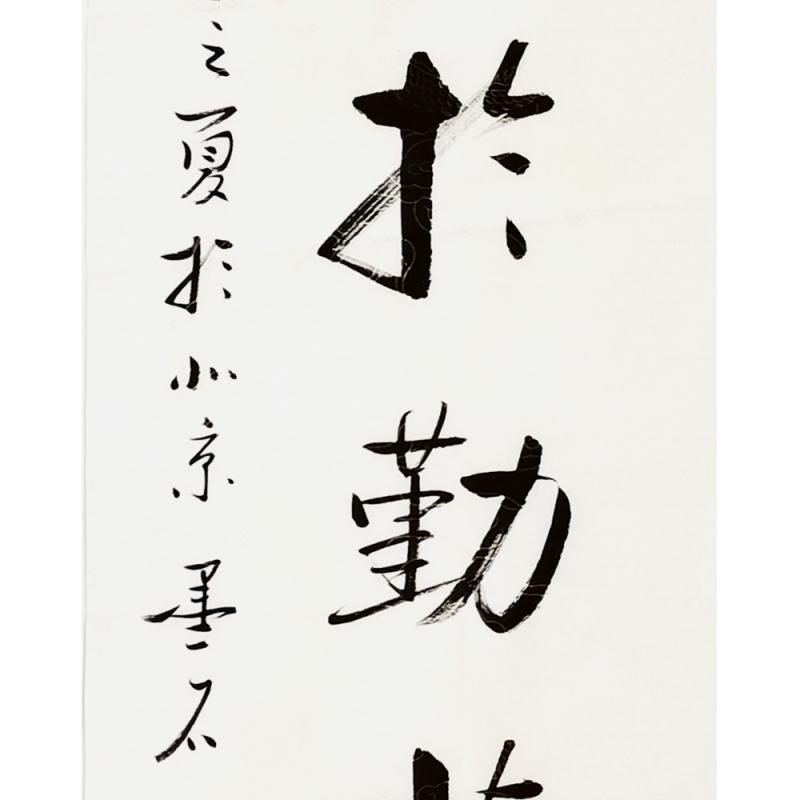 於勤
之夏於北京墨石